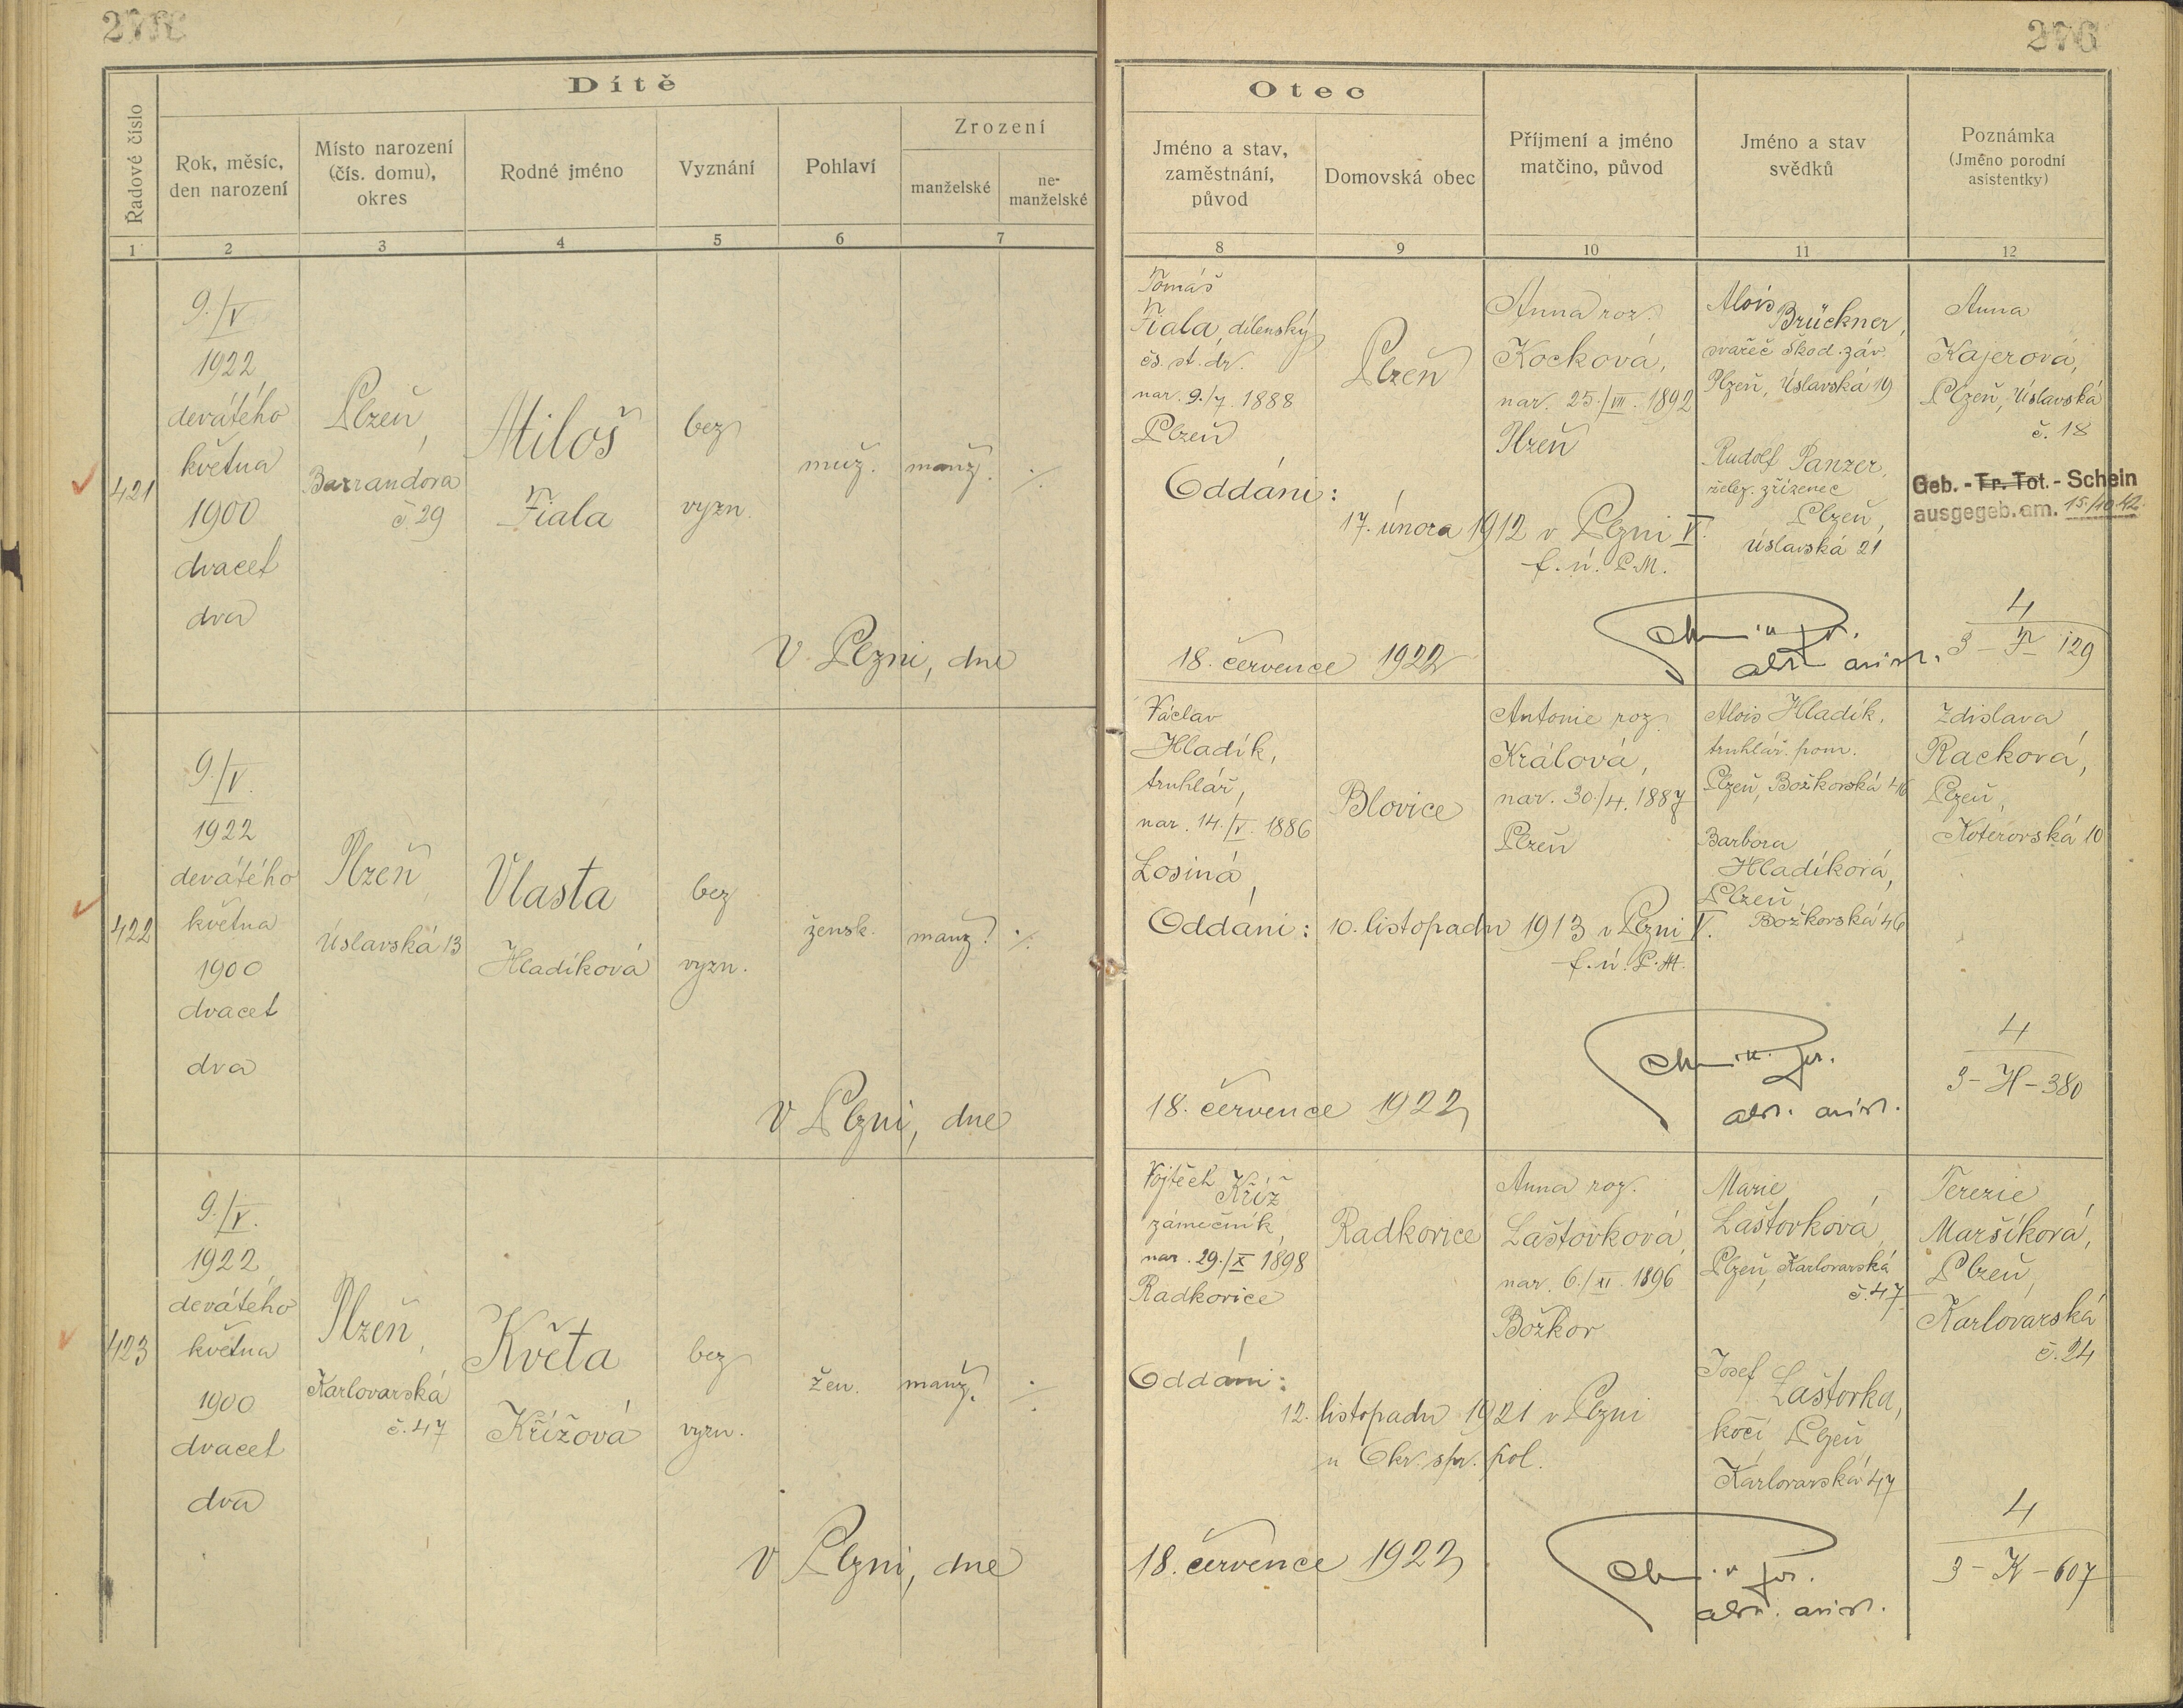 276
Dítě
Otec
Řadové číslo
Rok, měsíc,
den narození
Místo narození
(čís. domu),
okres
Rodné jméno
Vyznání
Pohlaví
Zrození
manželské
ne-
manželské
Jméno a stav,
zaměstnání,
původ
Domovská obec
Příjmení a jméno
matčino, původ
Jméno a stav
svědků
Poznámka
(Jméno porodní
asistentky)
1 2 3 4 5 6 7 8 9 10 11 12
421
9./V
1922
devátého
května
1900
dvacet
dva
Plzeň,
Barrandova
č. 29
Miloš
Fiala
bez
vyzn.
muž.
manž.
./.
V Plzni, dne
Tomáš
Fiala, dílenský
čs. st. dr.
nar. 9./7. 1888
Plzeň
Plzeň
Anna roz.
Kocková,
nar. 25./VII. 1892
Plzeň
Oddáni:
17. února 1912 v Plzni V.
f. ú. P.M.
Alois
Brückner,
svařeč škod. záv.
Plzeň, Úslavská 19
Rudolf Panzer,
želez. zřízenec
Plzeň,
Úslavská 21
Anna
Kajerová,
Plzeň, Úslavská
č. 18
Geb. - Tr. Tot. - Schein
ausgegeb. am. 15./10 42.
18. července 1922
4
3 - F 129
422
9./V.
1922
devátého
května
1900
dvacet
dva
Plzeň,
Úslavská 13
Vlasta
Hladíková
bez
vyzn.
žensk.
manž.
./.
V Plzni, dne
Václav
Hladík,
truhlář,
nar. 14./V. 1886
Losiná,
Blovice
Antonie roz.
Králová,
nar. 30./4. 1887
Plzeň
Oddáni: 10. listopadu 1913 v Plzni V.
f. ú. P.M.
Alois Hladík,
truhlář. pom.
Plzeň, Božkovská 46
Barbora
Hladíková,
Plzeň,
Božkovská 46
Zdislava
Racková,
Plzeň,
Koterovská 10
18. července 1922
4
3 - H - 380
423
9./V.
1922
devátého
května
1900
dvacet
dva
Plzeň,
Karlovarská
č. 47
Květa
Křížová
bez
vyzn.
žen.
manž.
./.
V Plzni, dne
Vojtěch Kříž
zámečník,
nar. 29./X 1898
Radkovice
Radkovice
Anna roz.
Laštovková,
nar. 6./XI. 1896
Božkov
Oddáni:
12. listopadu 1921 v Plzni
u Okr. spr. pol.
Marie
Laštovková,
Plzeň, Karlovarská
č. 47
Josef
Laštovka,
kočí Plzeň,
Karlovarská 47
Terezie
Maršíková,
Plzeň,
Karlovarská
č. 24
18. července 1922
4
3 - K - 607